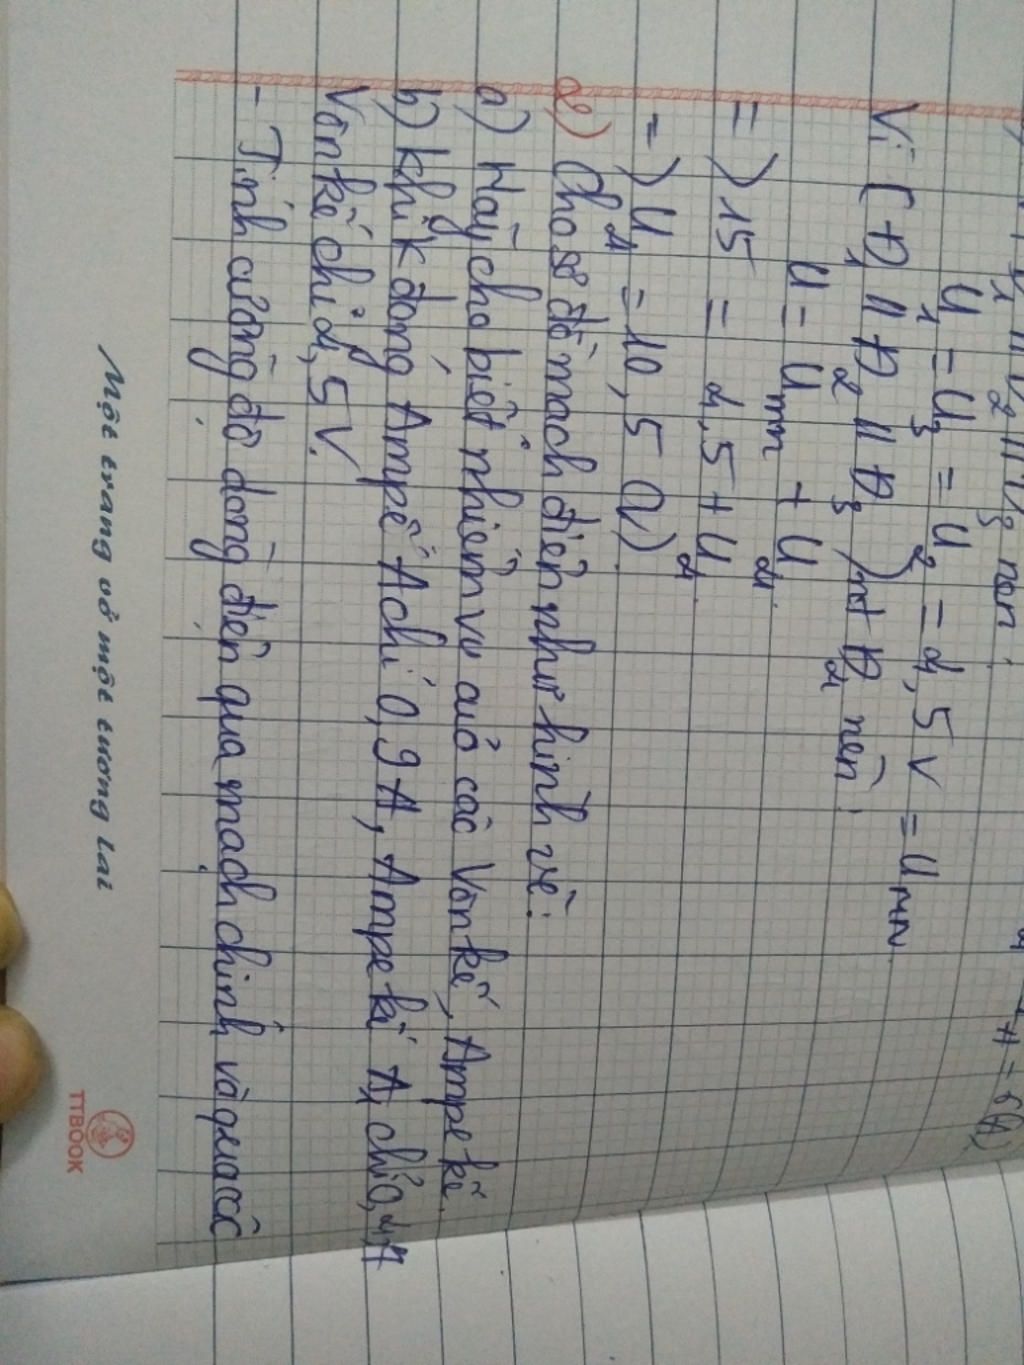 U₁ = U₃ = U₂ = 4,5V = UMN
Vì (Đ₁ // Đ₂ // Đ₃) nt Đ₄ nên:
U = Umn + U₄
=) 15 = 4,5 + U₄
=) U₄ = 10,5 (V)
2) Cho sơ đồ mạch điện như hình vẽ:
a) Hãy cho biết nhiệm vụ của các Vôn kế, Ampe kế.
b) khi k đóng Ampe kế A chỉ 0,9A, Ampe kế A₁ chỉ 0,4A
Vôn kế chỉ 4,5V.
- Tính cường độ dòng điện qua mạch chính và qua các
Một trang vở một tương lai
TTBOOK